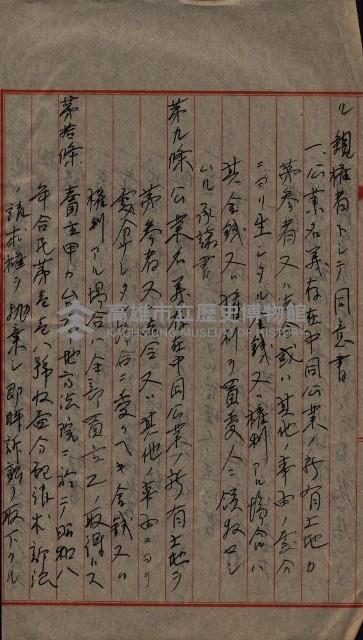 ル親権者トシテ同意書
一、公業名義存在中同公業ノ所有土地カ
第参者又ハ官或ハ其他ノ事由ノ處分
ニヨリ生シタル金銭又ハ権利アル場合ハ
其ノ金銭又ハ権利ヲ買受人ニ領收セシ
ムル承諾書
第九條 公業名義存在中同公業ノ所有土地ヲ
第参者又ハ官公又ハ其他ノ事由ニヨリ
處分シタル場合ニ受クヘキ金銭又ハ
権利アル場合ハ全部買主乙ノ取得トス
第拾條 賣主甲カ台 地方法院ニ於テ昭和八
年合民第壱壱八號收益分配請求訴訟
ノ請求権ヲ抛棄シ即時訴訟ノ取下ヲ
高雄市立歷史博物館
KAOHSIUNG MUSEUM OF HISTORY